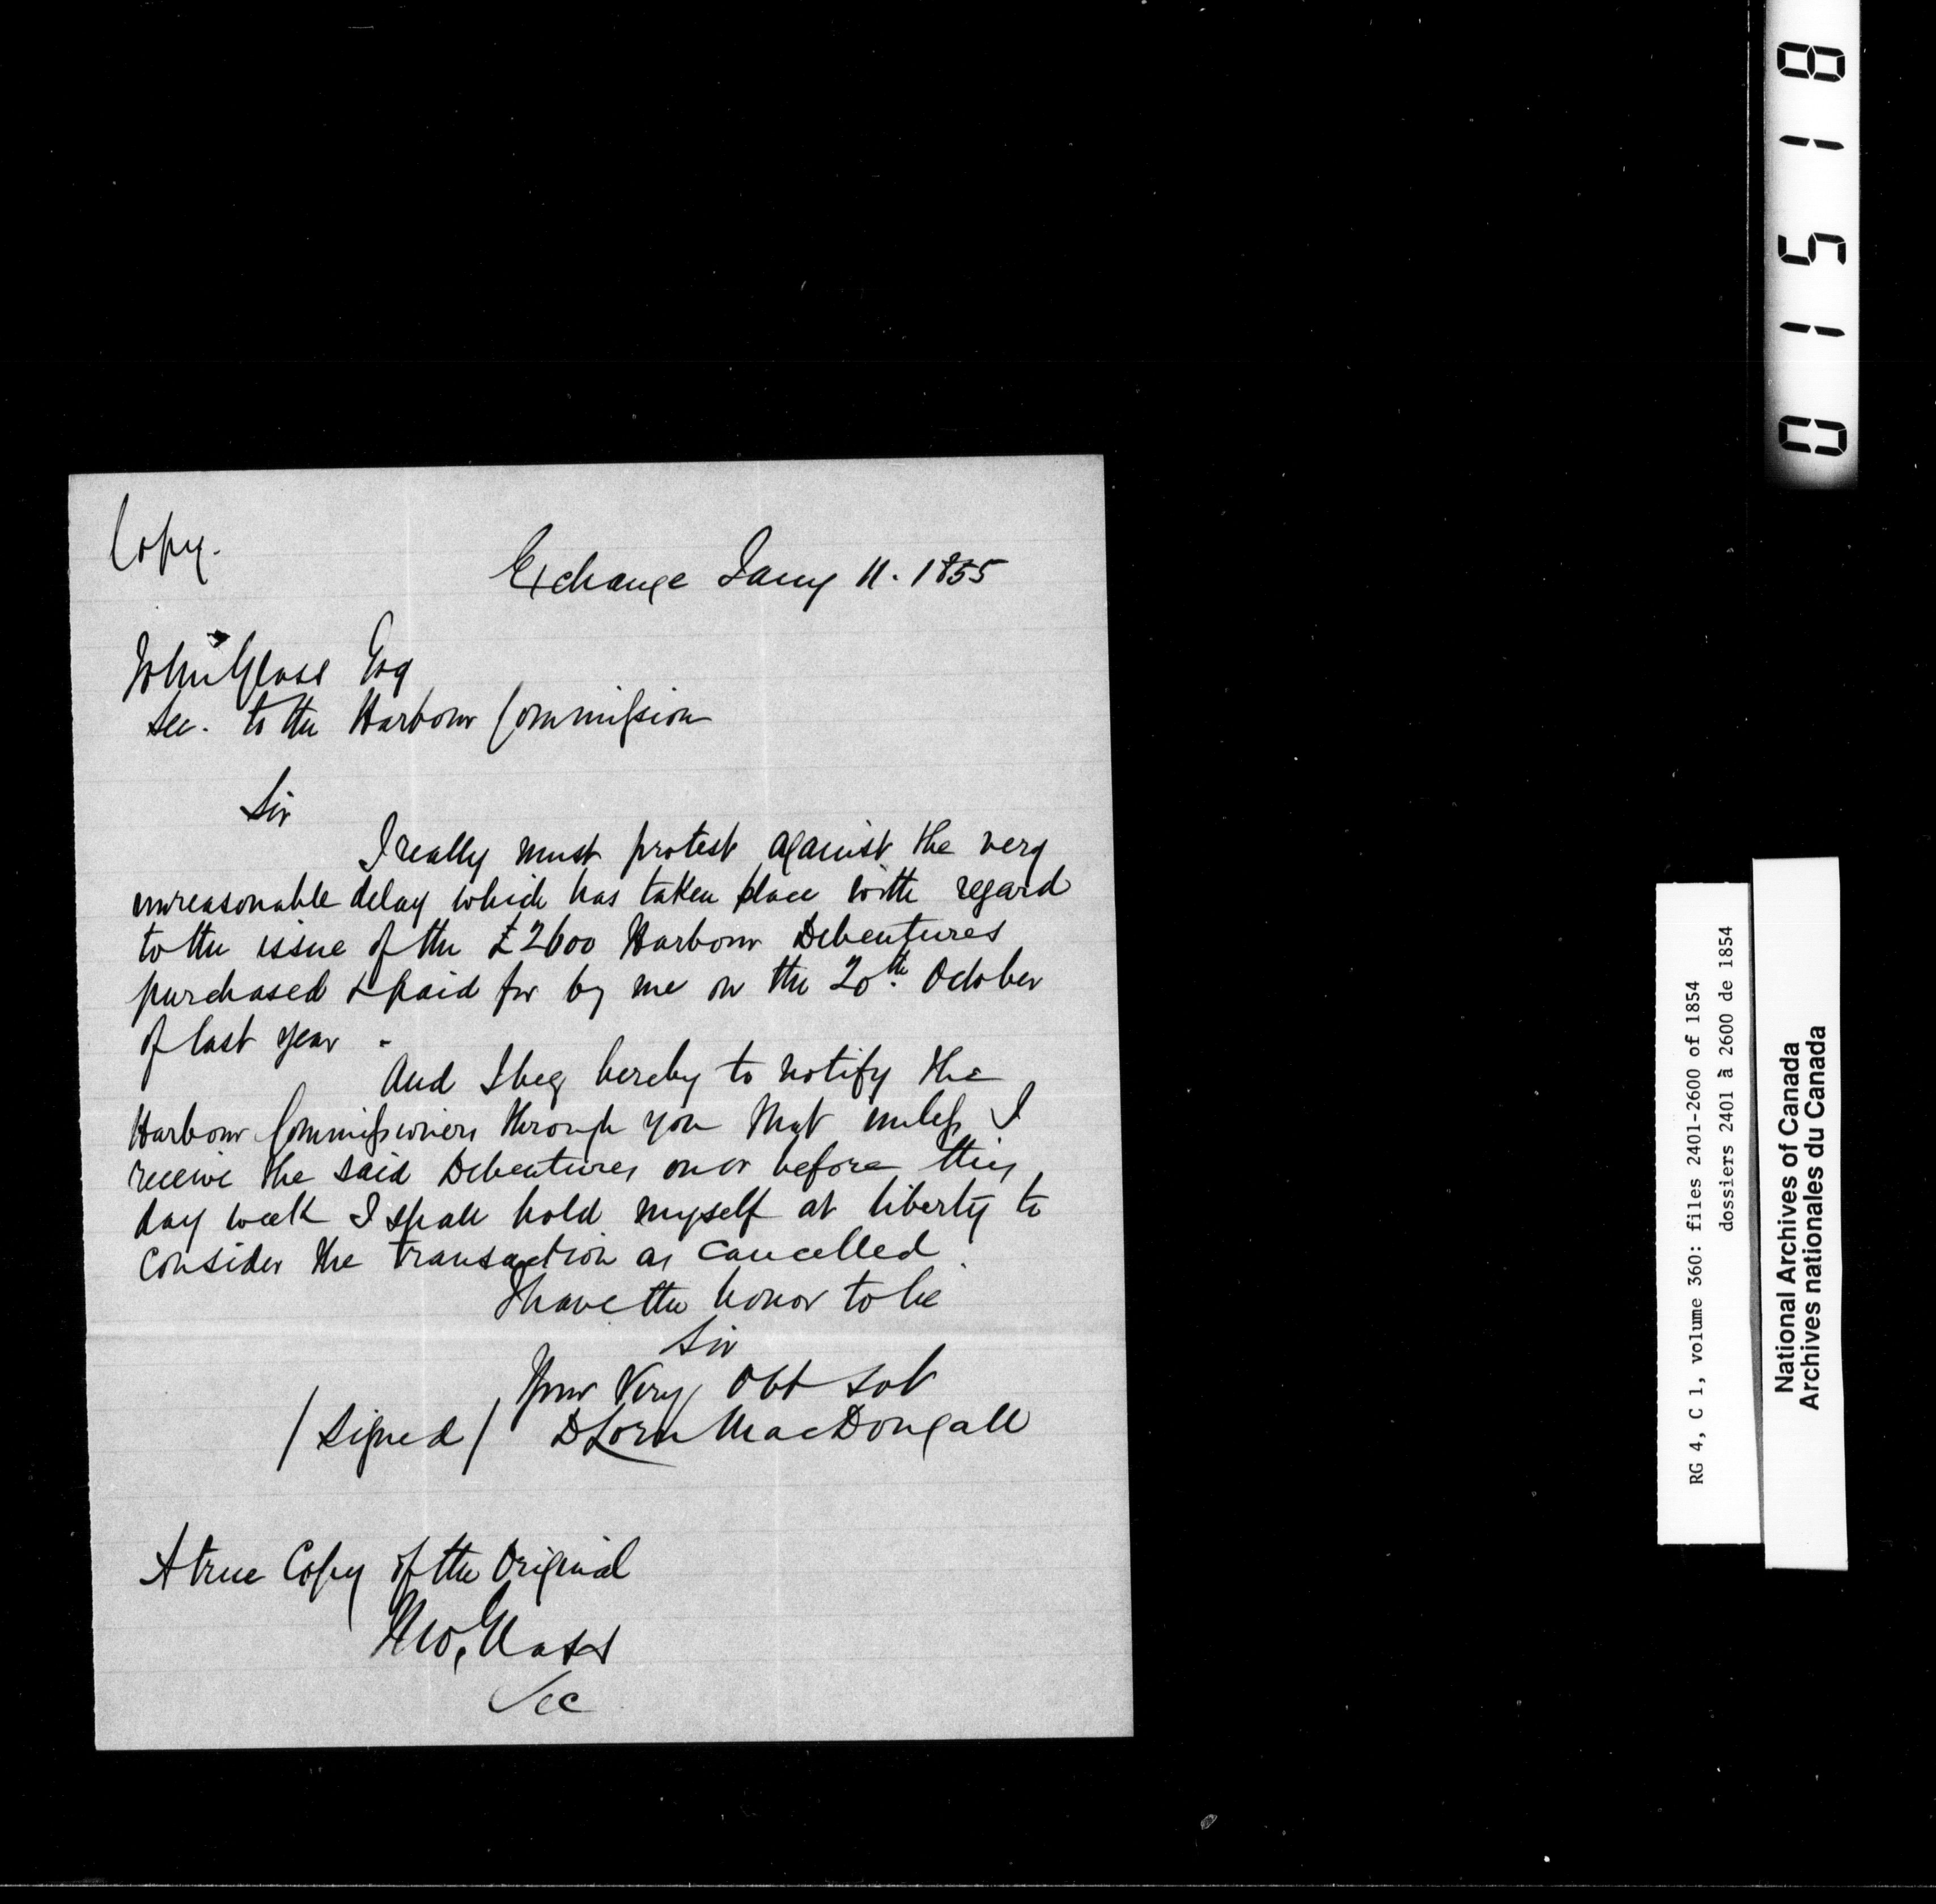 Copy.
Exchange Jany 11. 1855
John Glass Esq
Sec. to the Harbour Commission
Sir
I really must protest against the very
unreasonable delay which has taken place with regard
to the issue of the £2600 Harbour Debentures
purchased & paid for by me on the 20th. October
of last year -
And I beg hereby to notify the
Harbour Commissioners through you that unless I
receive the said Debentures on or before this
day week I shall hold myself at liberty to
consider the transaction as cancelled.
I have the honor to be
Sir
Your Very Obt Svt
/ Signed / D Lorn MacDougall
A true Copy of the Original
Jno, Glass
Sec
01518
RG 4, C 1, volume 360: files 2401-2600 of 1854
dossiers 2401 à 2600 de 1854
National Archives of Canada
Archives nationales du Canada